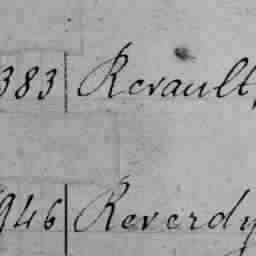 383 Revault,
946 Reverdy